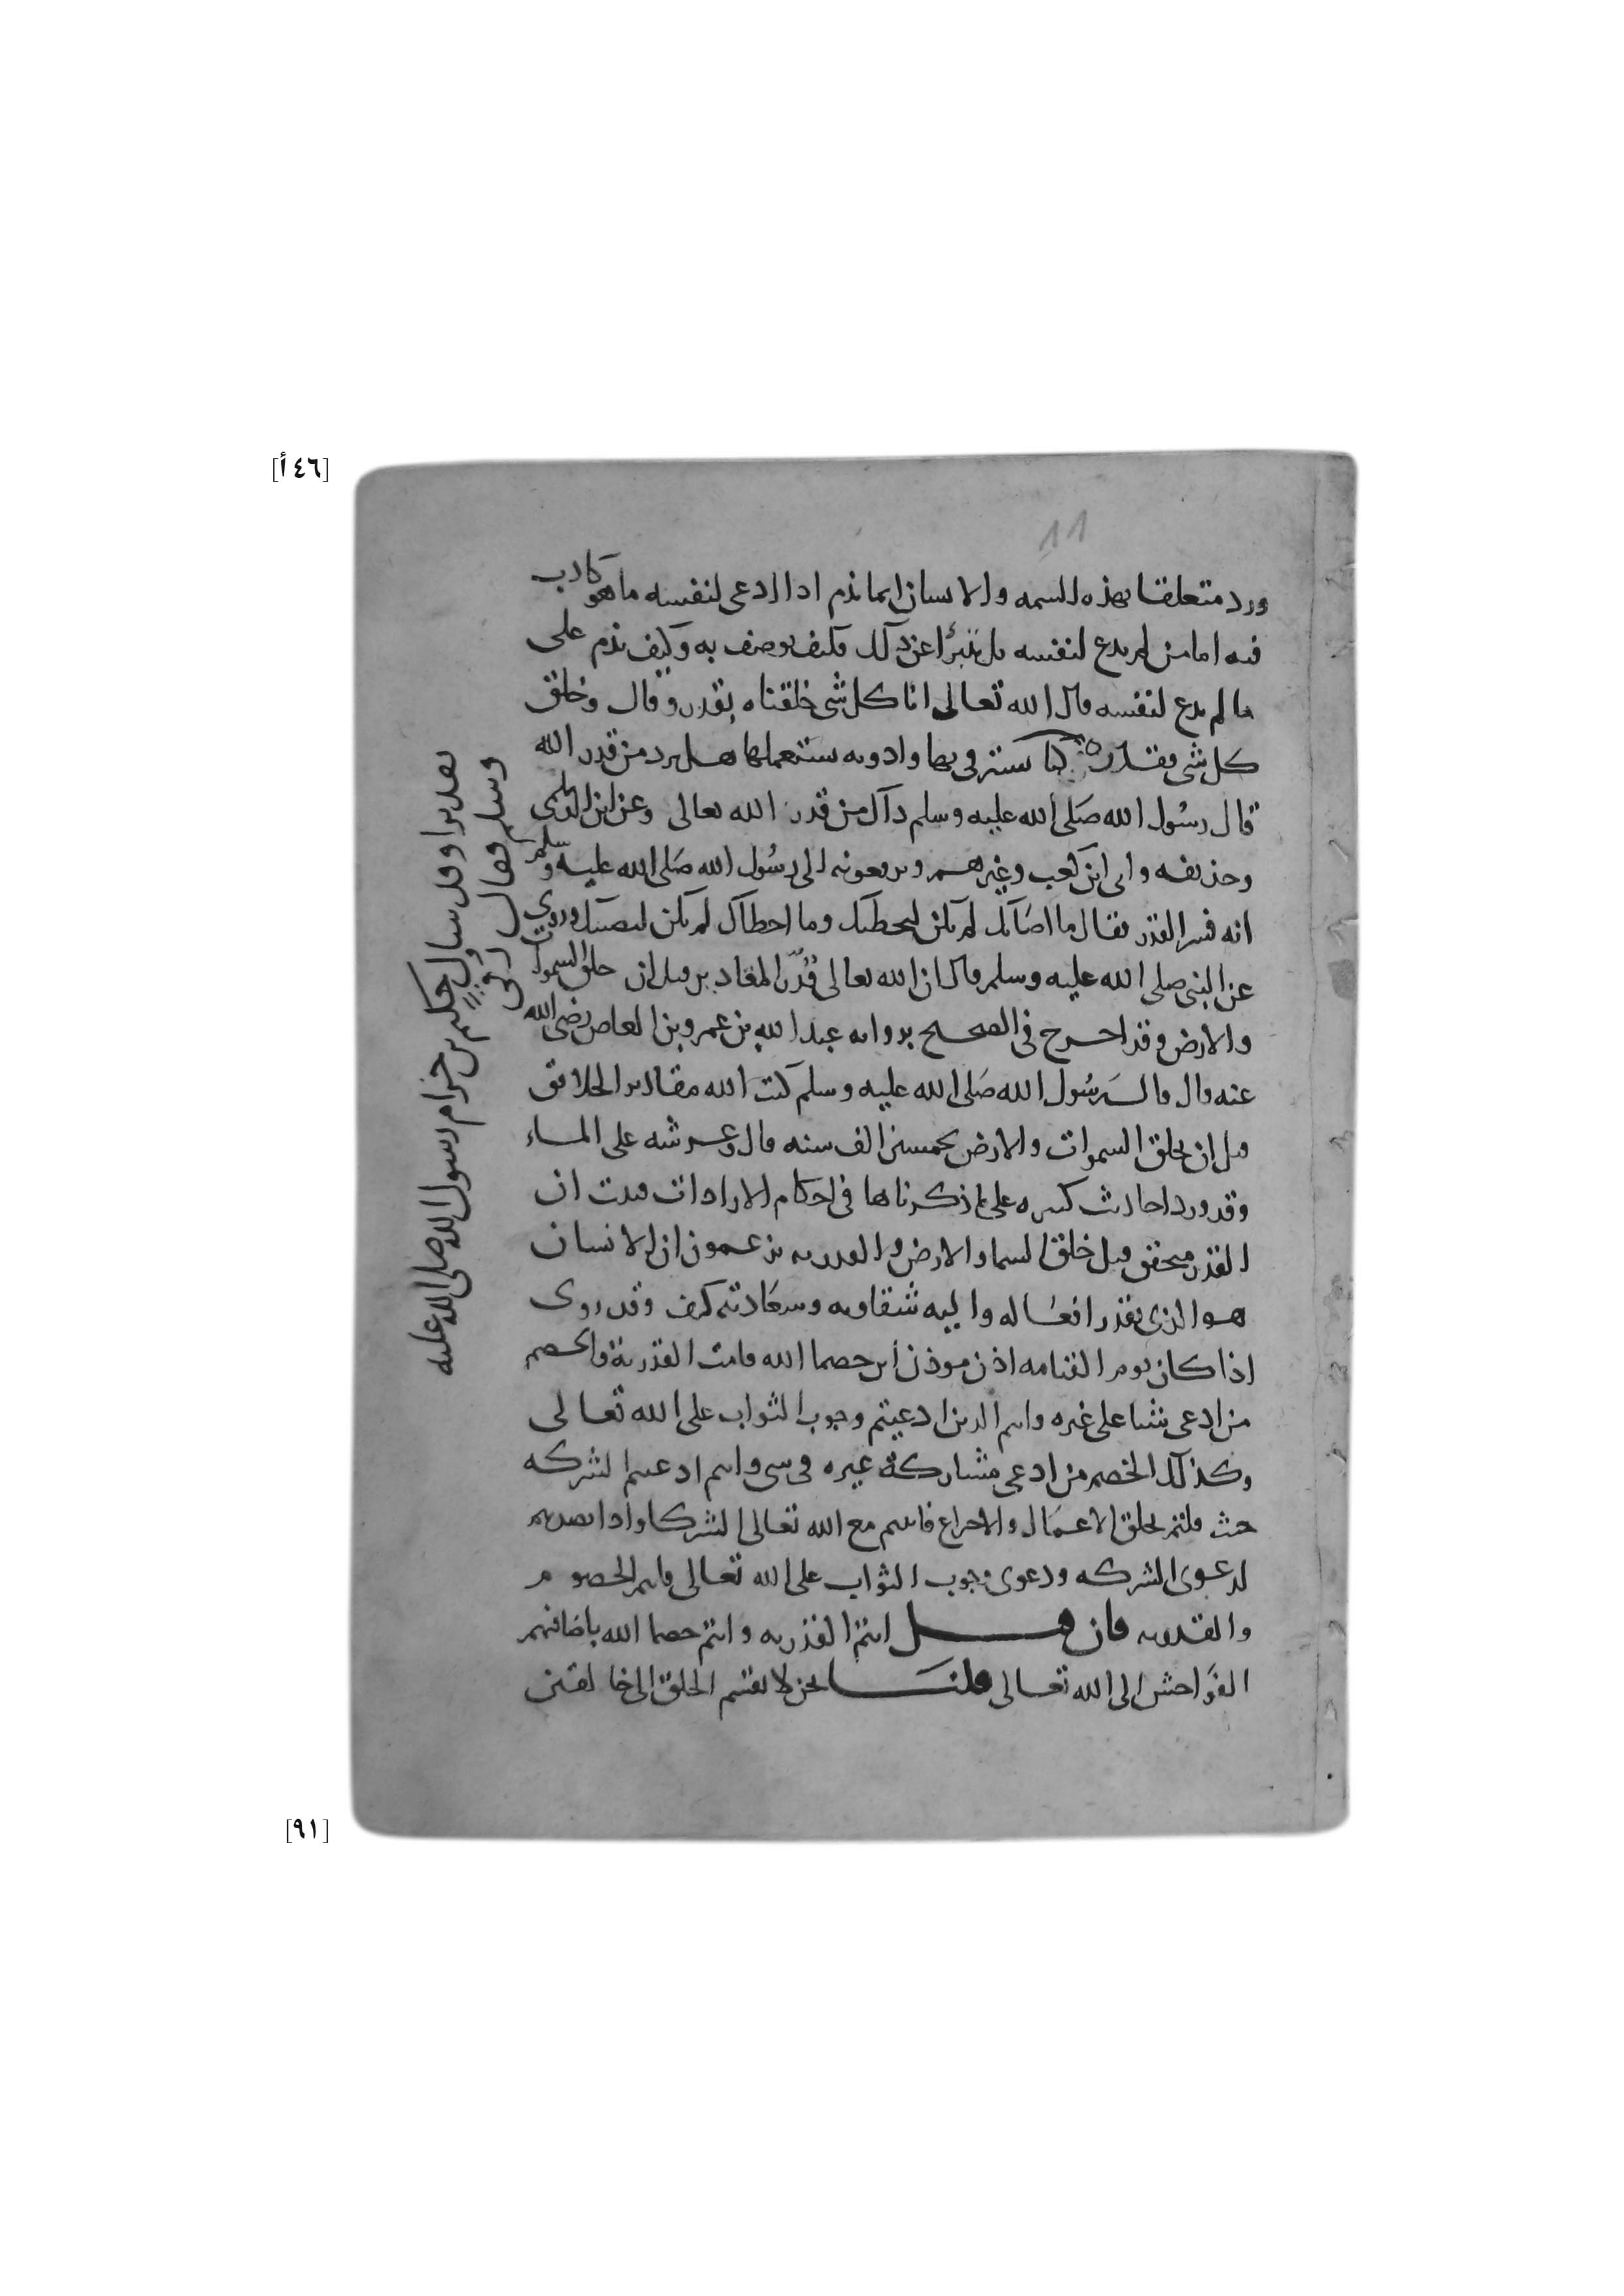 [٤٦أ]
ورد متعلقا بهذه السمه والانسان انما يذم اذا ادعى لنفسه ما هو كاذب
فيه اما من لم يدع لنفسه بل تبرأ عن ذلك فكيف يوصف به وكيف يذم على
ما لم يدع لنفسه قال الله تعالى انا كل شى خلقناه بقدر وقال وخلق
كل شى فقدره كنا نسترقى بها وادويه نستعملها هل يرد من قدر الله
قال رسول الله صلى الله عليه وسلم ذاك من قدر الله تعالى وعن ابن الديلمى
وحذيفه وابى ابن كعب وغيرهم ويرفعونه الى رسول الله صلى الله عليه وسلم
انه فسر القدر فقال ما اصابك لم يكن ليخطيك وما اخطاك لم يكن ليصيبك وروي
عن النبى صلى الله عليه وسلم قال ان الله تعالى قدّر المقادير قبل ان خلق السموات
والارض وقد اخرج فى الصحيح بروايه عبد الله بن عمرو بن العاص رضى الله
عنه قال قال رسول الله صلى الله عليه وسلم كتب الله مقادير الخلايق
قبل ان يخلق السموات والارض بخمسين الف سنه قال وعرشه على الماء
وقد ورد احاديث كثيره على ما ذكرناها فى احكام الارادات فدت ان
القدر متحقق قبل خلق السما والارض والقدريه يزعمون ان الانسان
هو الذى يقدر افعاله واليه شقاوته وسعادته كيف وقد روى
اذا كان يوم القيامه اذن موذن اين خصما الله فقامت القدرية والخصم
من ادعى شيا على غيره وانتم الذين ادعيتم وجوب الثواب على الله تعالى
وكذلك الخصم من ادعى مشاركة غيره فى شى وانتم ادعيتم الشركه
حيث قلتم بخلق الاعمال والاختراع فانتم مع الله تعالى الشركا واذا تصديتم
لدعوى الشركه ودعوى وجوب الثواب على الله تعالى فانتم الخصوم
والقدريه فان قيل انتم القدريه وانتم خصما الله باضافتهم
الفواحش الى الله تعالى قلنا نحن لا نقسم الخلق الى خالقين
تقديرا وقد سال حكيم بن حزام رسول الله صلى الله عليه
وسلم فقال رقى
[٩١]